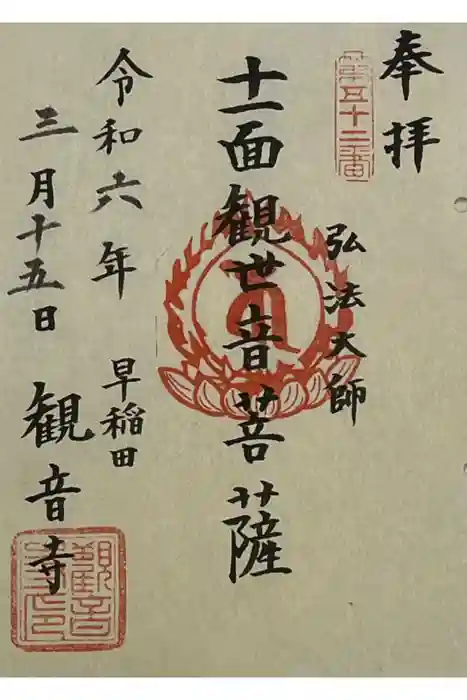 奉拝
第五十二番
弘法大師
十一面観世音菩薩
令和六年
三月十五日
早稲田
観音寺
観音寺印